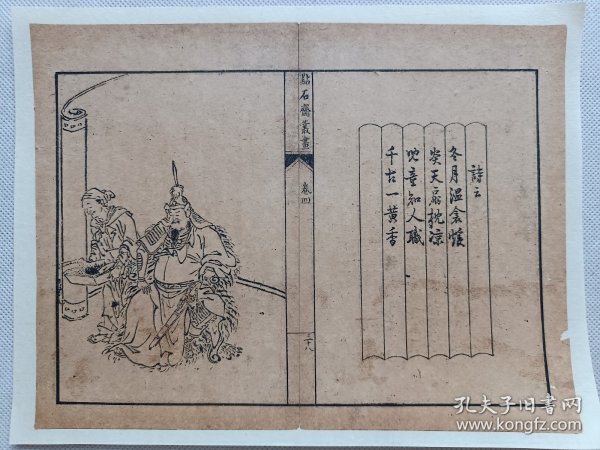 詩云
冬月溫衾煖
炎天扇枕凉
兒童知人職
千古一黃香
點石齋叢畫
卷四
三十八
孔夫子旧書网
www.kongfz.com